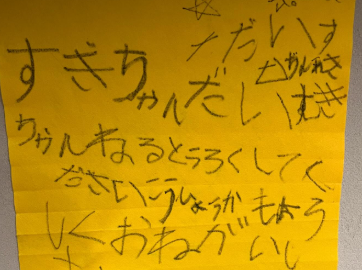 だいす
すぎちゃんだいすき
ちゃんねるとうろくしてく
ださいこうしょうかもよう
しくおねがいし